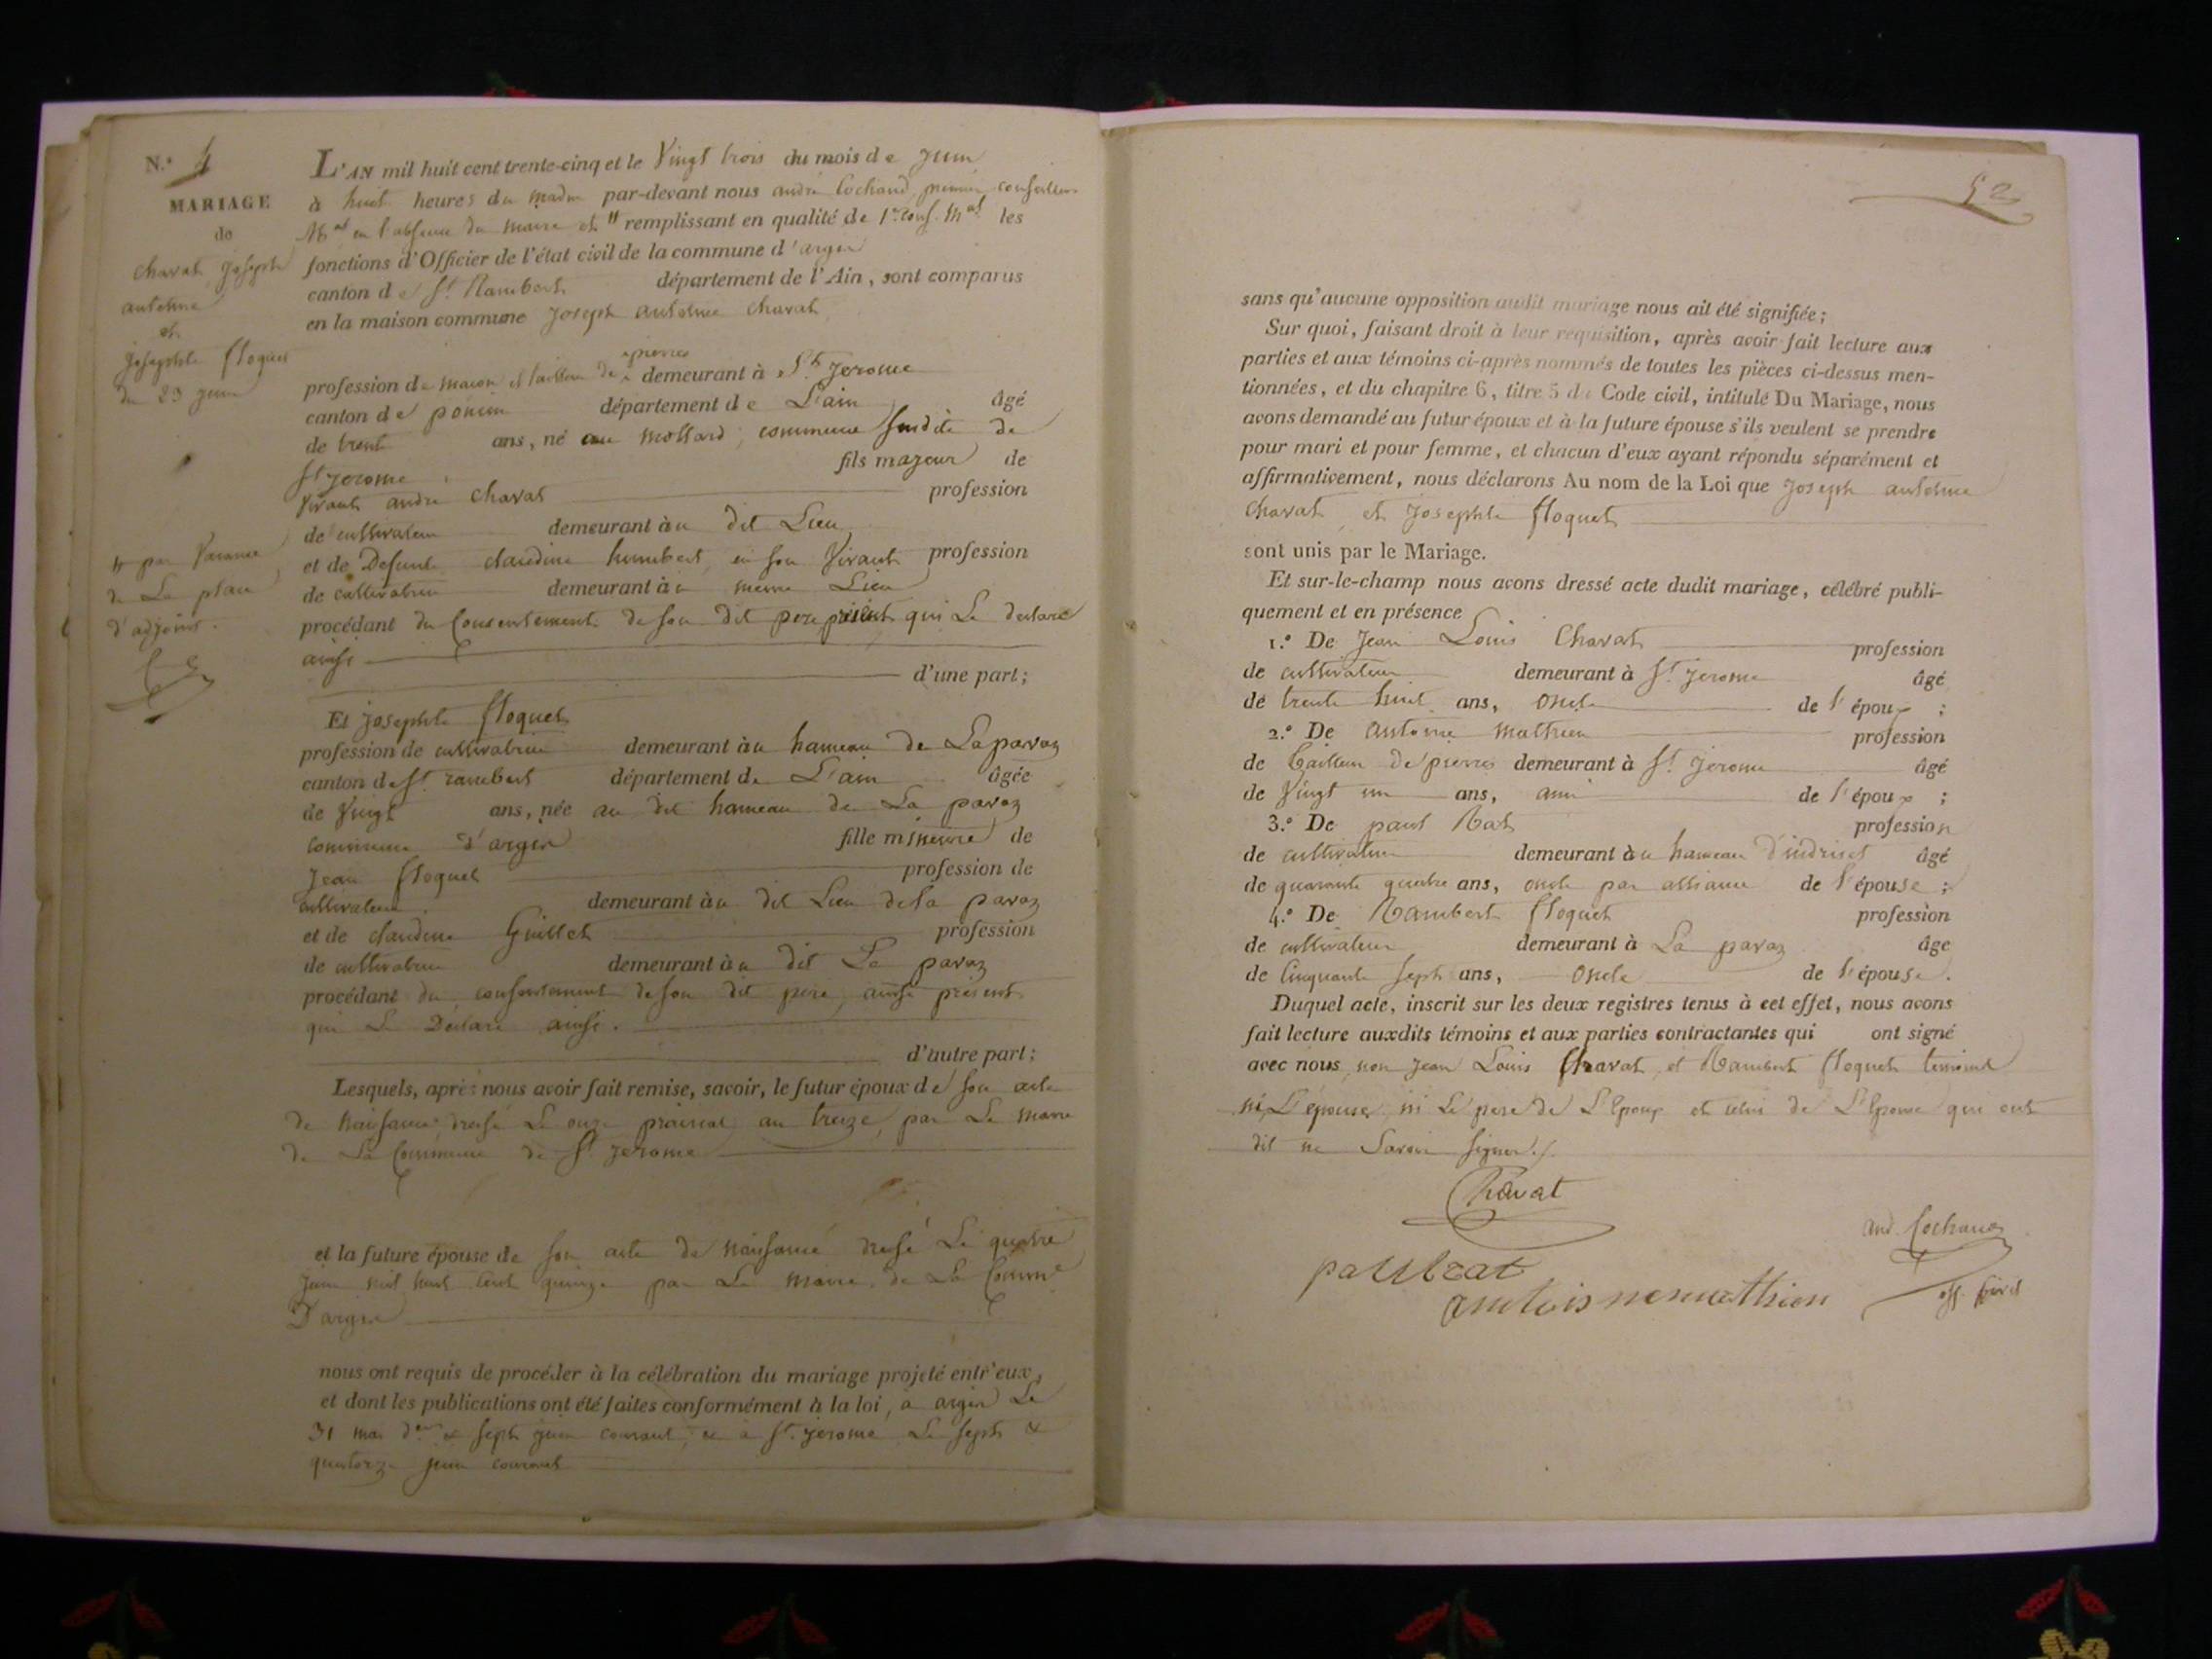 N.º 4
MARIAGE
de
Chavat Joseph
antoine
et
Josephte floquet
du 23 juin
L'AN mil huit cent trente-cinq et le Vingt trois du mois de Juin
à huit heures du matin par-devant nous andré Cochand, premier conseiller
Mal en l'absence du maire et " remplissant en qualité de 1er cons. Mal les
fonctions d'Officier de l'état civil de la commune d'argis
canton de St Rambert département de l'Ain, sont comparus
en la maison commune Joseph antoine Chavat
profession de macon et tailleur de pierres demeurant à St Jerome
canton de poncin département de L'ain âgé
de trente ans, né au mollard, commune susdite de
St Jerome fils majeur de
Vivant andré Chavat profession
de cultivateur demeurant àu dit Lieu
et de Defunte claudine humbert, en son Vivant profession
de cultivatrice demeurant àu meme Lieu
" par Vacance
de La place
d'adjoint.
procédant du Consentement de son dit pere présent qui Le declare
ainsi
d'une part;
Et Josephte floquet
profession de cultivatrice demeurant àu hameau de La pavaz
canton de St rambert département de L'ain âgée
de Vingt ans, née au dit hameau de La pavaz
commune d'argis fille mineure de
Jean floquet profession de
cultivateur demeurant àu dit Lieu de la pavaz
et de claudine Guillet profession
de cultivatrice demeurant àu dit La pavaz
procédant du consentement de son dit pere, ainsi présent
qui Le Déclare ainsi.
d'autre part;
Lesquels, après nous avoir fait remise, savoir, le futur époux de son acte
de Naissance dressé Le onze prairial an treize, par Le Maire
de La Commune de St Jerome
et la future épouse de son acte de Naissance dressé Le quatre
Juin mil huit cent quinze par Le Maire de La Comme
D'argis
nous ont requis de procéder à la célébration du mariage projeté entr'eux,
et dont les publications ont été faites conformément à la loi, à argis Le
31 mai der & sept juin courant, & à St Jerome Le sept &
quatorze juin courant
52
sans qu'aucune opposition audit mariage nous ait été signifiée;
Sur quoi, faisant droit à leur requisition, après avoir fait lecture aux
parties et aux témoins ci-après nommés de toutes les pièces ci-dessus men-
tionnées, et du chapitre 6, titre 5 du Code civil, intitulé Du Mariage, nous
avons demandé au futur époux et à la future épouse s'ils veulent se prendre
pour mari et pour femme, et chacun d'eux ayant répondu séparément et
affirmativement, nous déclarons Au nom de la Loi que Joseph antoine
Chavat et Josephte floquet
sont unis par le Mariage.
Et sur-le-champ nous avons dressé acte dudit mariage, célébré publi-
quement et en présence
1.º De Jean Louis Chavat profession
de cultivateur demeurant à St Jerome âgé
de trente huit ans, oncle de l'époux ;
2.º De antoine mathieu profession
de tailleur de pierres demeurant à St Jerome âgé
de Vingt un ans, ami de l'époux ;
3.º De paul Rat profession
de cultivateur demeurant àu hameau d'indrieu âgé
de quarante quatre ans, oncle par alliance de l'épouse ;
4.º De Rambert floquet profession
de cultivateur demeurant à La pavaz âgé
de Cinquante sept ans, oncle de l'épouse.
Duquel acte, inscrit sur les deux registres tenus à cet effet, nous avons
fait lecture auxdits témoins et aux parties contractantes qui ont signé
avec nous, non Jean Louis Chavat, et Rambert floquet temoins
ni L'épouse, ni Le pere de L'Epoux et celui de L'Epouse qui ont
dit ne Savoir Signer./.
Chavat
and. Cochand
paul rat
off. Civil
antoine mathieu